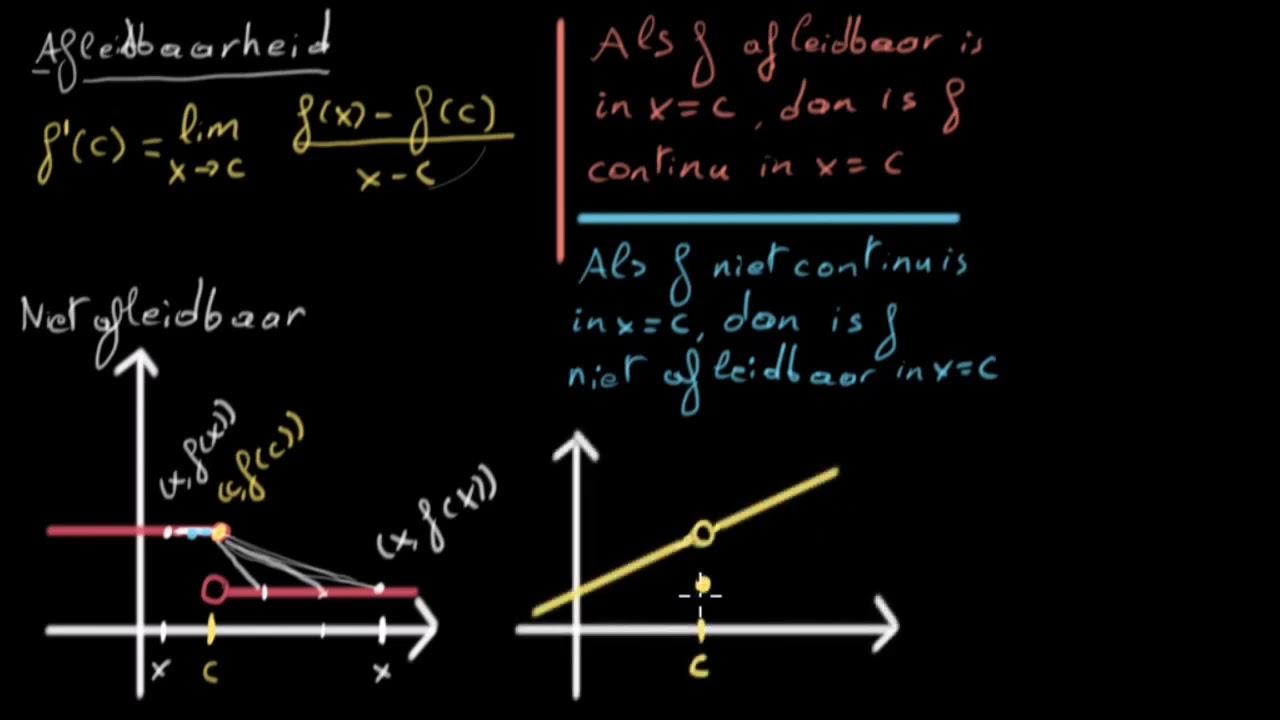 Afleidbaarheid
f'(c) = lim x→c f(x) - f(c) / x - c
Als f afleidbaar is
in x = c, dan is f
continu in x = c
Als f niet continu is
in x = c, dan is f
niet afleidbaar in x = c
Niet afleidbaar
(x, f(x))
(c, f(c))
(x, f(x))
x
c
x
c